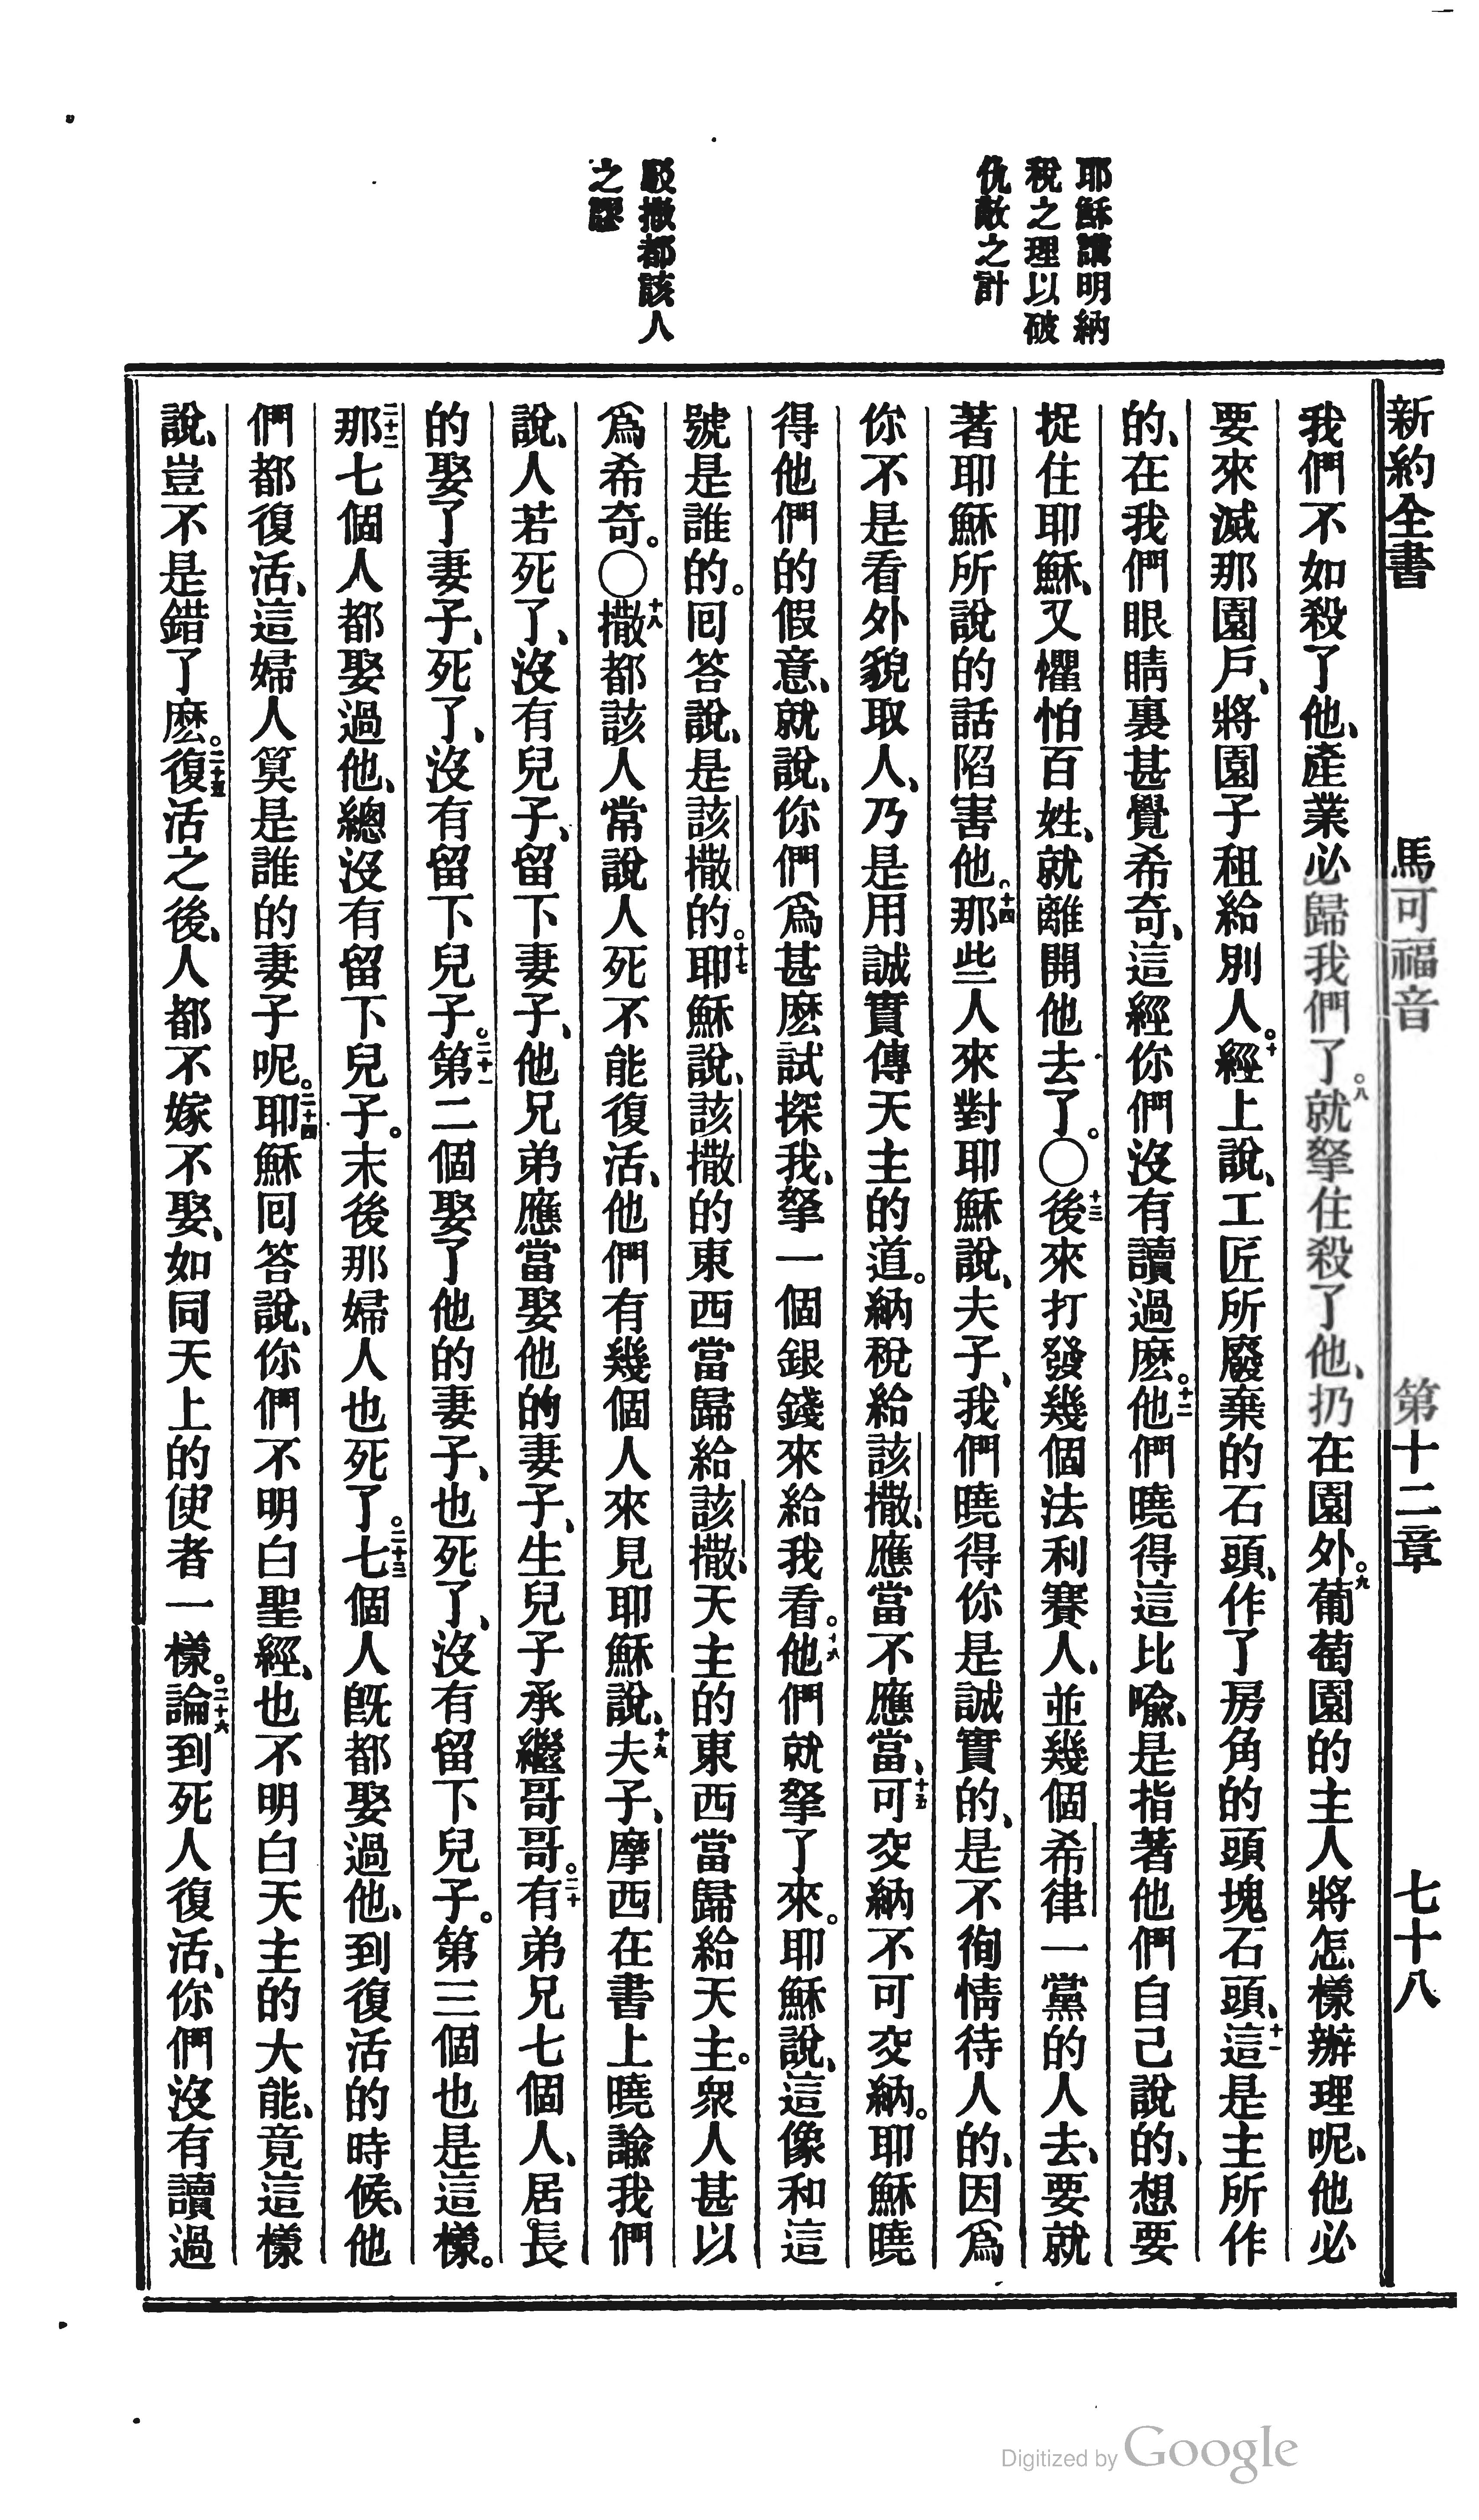 耶穌講明納
稅之理以破
仇敵之計
駁撒都該人
之謬
新約全書 馬可福音 第十二章 七十八
我們不如殺了他、產業必歸我們了。八就拏住殺了他、扔在園外。九葡萄園的主人將怎樣辦理呢、他必
要來滅那園戶、將園子租給別人。十經上說、工匠所廢棄的石頭、作了房角的頭塊石頭、十一這是主所作
的、在我們眼睛裏甚覺希奇、這經你們沒有讀過麽。十二他們曉得這比喩、是指著他們自己說的、想要
捉住耶穌、又懼怕百姓、就離開他去了。〇十三後來打發幾個法利賽人、並幾個希律一黨的人去、要就
著耶穌所說的話陷害他。十四那些人來對耶穌說、夫子、我們曉得你是誠實的、是不徇情待人的、因爲
你不是看外貌取人、乃是用誠實傳天主的道。納稅給該撒、應當不應當、十五可交納不可交納。耶穌曉
得他們的假意、就說、你們爲甚麽試探我、拏一個銀錢來給我看。十六他們就拏了來。耶穌說、這像和這
號是誰的。囘答說、是該撒的。十七耶穌說、該撒的東西當歸給該撒、天主的東西當歸給天主。衆人甚以
爲希奇。〇十八撒都該人常說人死不能復活、他們有幾個人來見耶穌說、十九夫子、摩西在書上曉諭我們
說、人若死了、沒有兒子、留下妻子、他兄弟應當娶他的妻子、生兒子承繼哥哥。二十有弟兄七個人、居長
的娶了妻子、死了、沒有留下兒子。二十一第二個娶了他的妻子、也死了、沒有留下兒子。第三個也是這樣。
二十二那七個人都娶過他、總沒有留下兒子。末後那婦人也死了。二十三七個人旣都娶過他、到復活的時候、他
們都復活、這婦人算是誰的妻子呢。二十四耶穌囘答說、你們不明白聖經、也不明白天主的大能、竟這樣
說、豈不是錯了麽。二十五復活之後、人都不嫁不娶、如同天上的使者一樣。二十六論到死人復活、你們沒有讀過
Digitized by Google